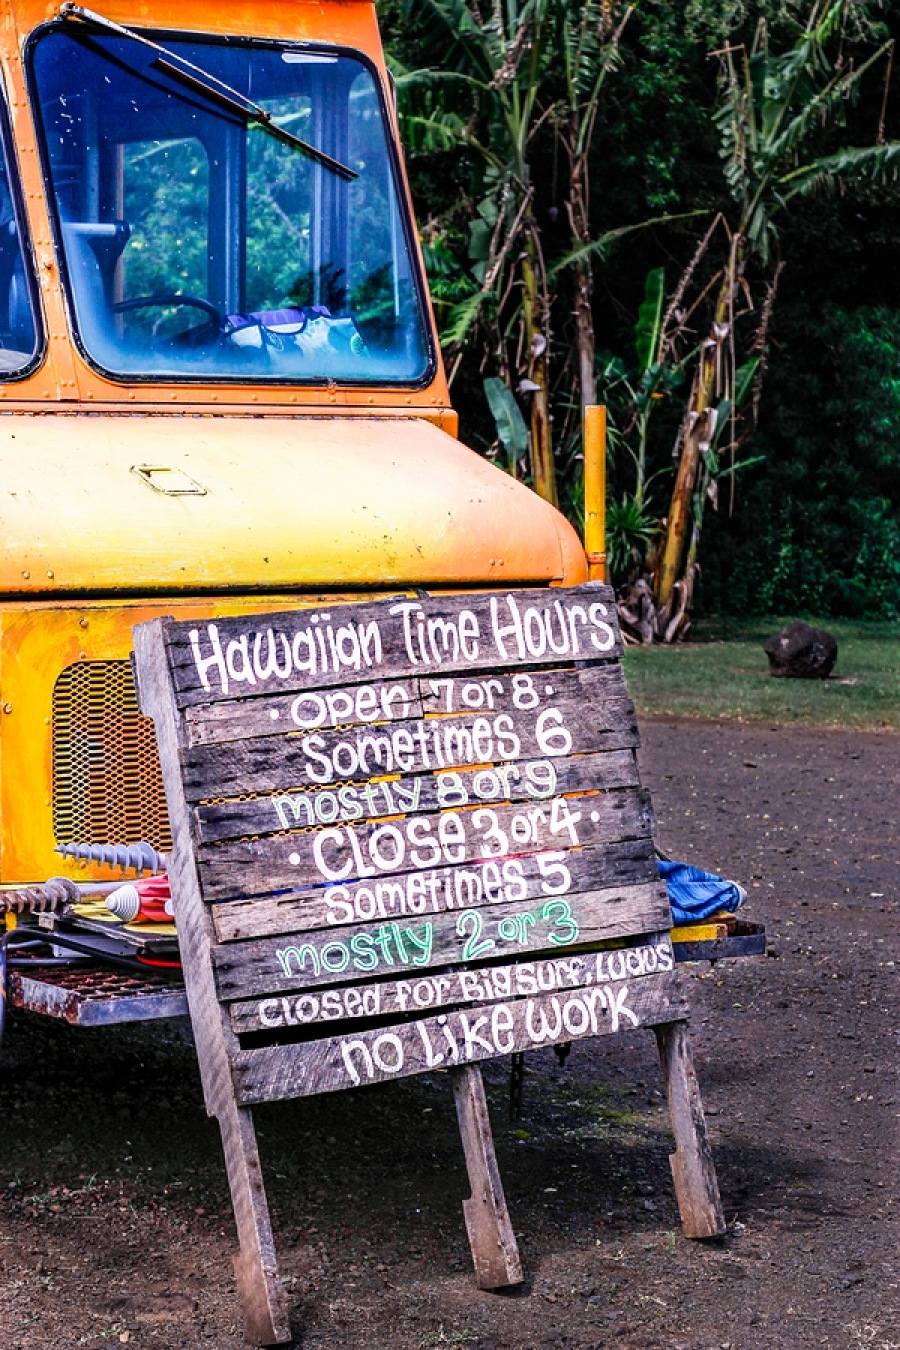 Hawaiian Time Hours
·Open 7 or 8·
Sometimes 6
mostly 8 or 9
·Close 3 or 4·
Sometimes 5
mostly 2 or 3
Closed for Big Surf, Luaus
no Like work